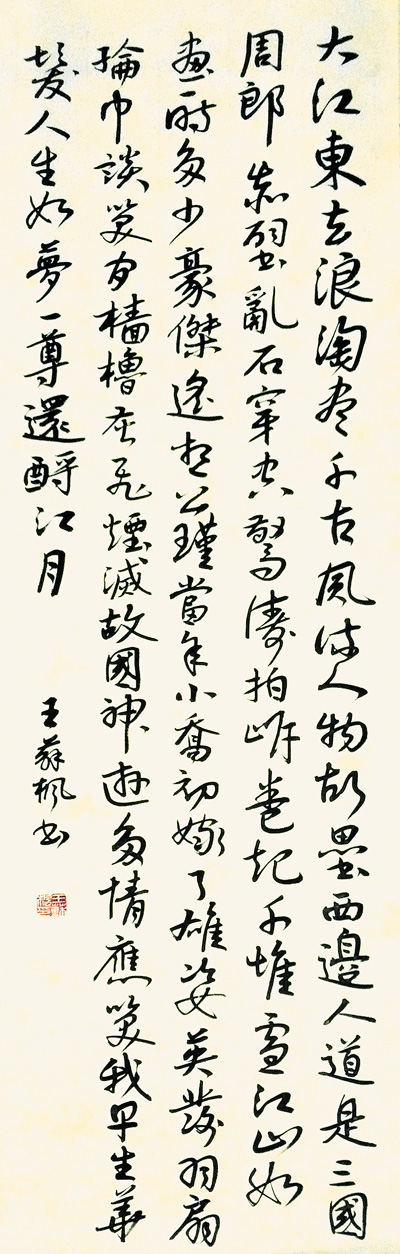 大江東去浪淘盡千古風流人物故壘西邊人道是三國
周郎赤壁亂石穿空驚濤拍岸卷起千堆雪江山如
畫一時多少豪傑遙想公瑾當年小喬初嫁了雄姿英發羽扇
綸巾談笑間檣櫓灰飛煙滅故國神遊多情應笑我早生華
髮人生如夢一尊還酹江月
王蘇楓書